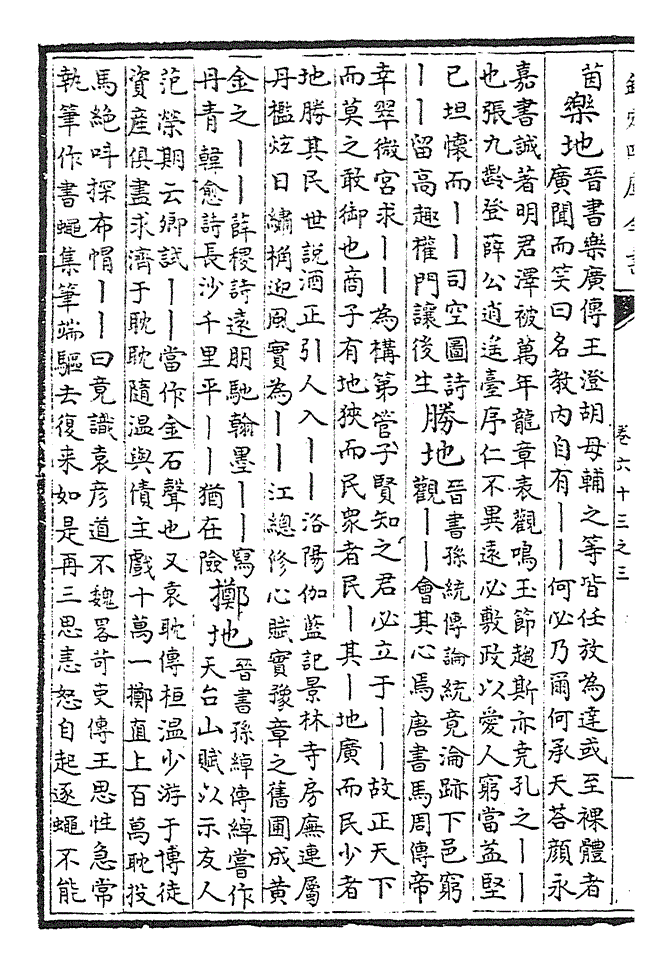 欽定四庫全書
卷六十三之三
茵
樂地
晉書樂廣傳王澄胡母輔之等皆任放為達或至裸體者
廣聞而笑曰名教內自有丨丨何必乃爾何承天荅顔永
嘉書誠著明君澤被萬年龍章表觀鳴玉節趨斯亦堯孔之丨丨
也張九齡登薛公逍遥臺序仁不異遠必敷政以愛人窮當益堅
已坦懷而丨丨司空圖詩
丨丨留高趣權門讓後生
勝地
晉書孫統傳論統竟淪跡下邑窮
觀丨丨會其心焉唐書馬周傳帝
幸翠微宮求丨丨為構第管子賢知之君必立于丨丨故正天下
而莫之敢御也商子有地狹而民衆者民丨其丨地廣而民少者
地勝其民世說酒正引人入丨丨洛陽伽藍記景林寺房廡連屬
丹檻炫日繡桷迎風實為丨丨江總修心賦實豫章之舊圃成黄
金之丨丨薛稷詩遠朋馳翰墨丨丨寫
丹青韓愈詩長沙千里平丨丨猶在險
擲地
晉書孫綽傳綽嘗作
天台山賦以示友人
范榮期云卿試丨丨當作金石聲也又袁耽傳桓温少游于博徒
資産俱盡求濟于耽耽隨温與債主戲十萬一擲直上百萬耽投
馬絶呌探布帽丨丨曰竟識袁彦道不魏畧苛吏傳王思性急常
執筆作書蠅集筆端驅去復来如是再三思恚怒自起逐蠅不能